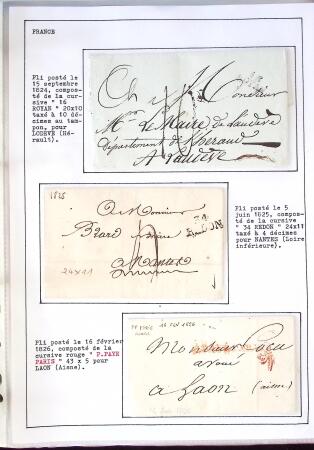 FRANCE
Pli posté le
15 septembre
1824, compos-
té de la cur-
sive " 16
ROYAN " 20x10
taxé à 10 dé-
cimes au tam-
pon, pour
LODEVE (Hé-
rault).
Monsieur
Le Maire de
département de
A
1825
A Monsieur
34
REDON
24x11
à Nantes
Pli posté le 5
juin 1825, compos-
té de la cursive
" 34 REDON " 24x11
taxé à 4 décimes
pour NANTES (Loire
inférieure).
Pli posté le 16 février
1826, composté de la
cursive rouge " P.PAYE
PARIS " 43 x 5 pour
LAON (Aisne).
16 FEV 1826
Monsieur
avoué
a Laon (aisne)